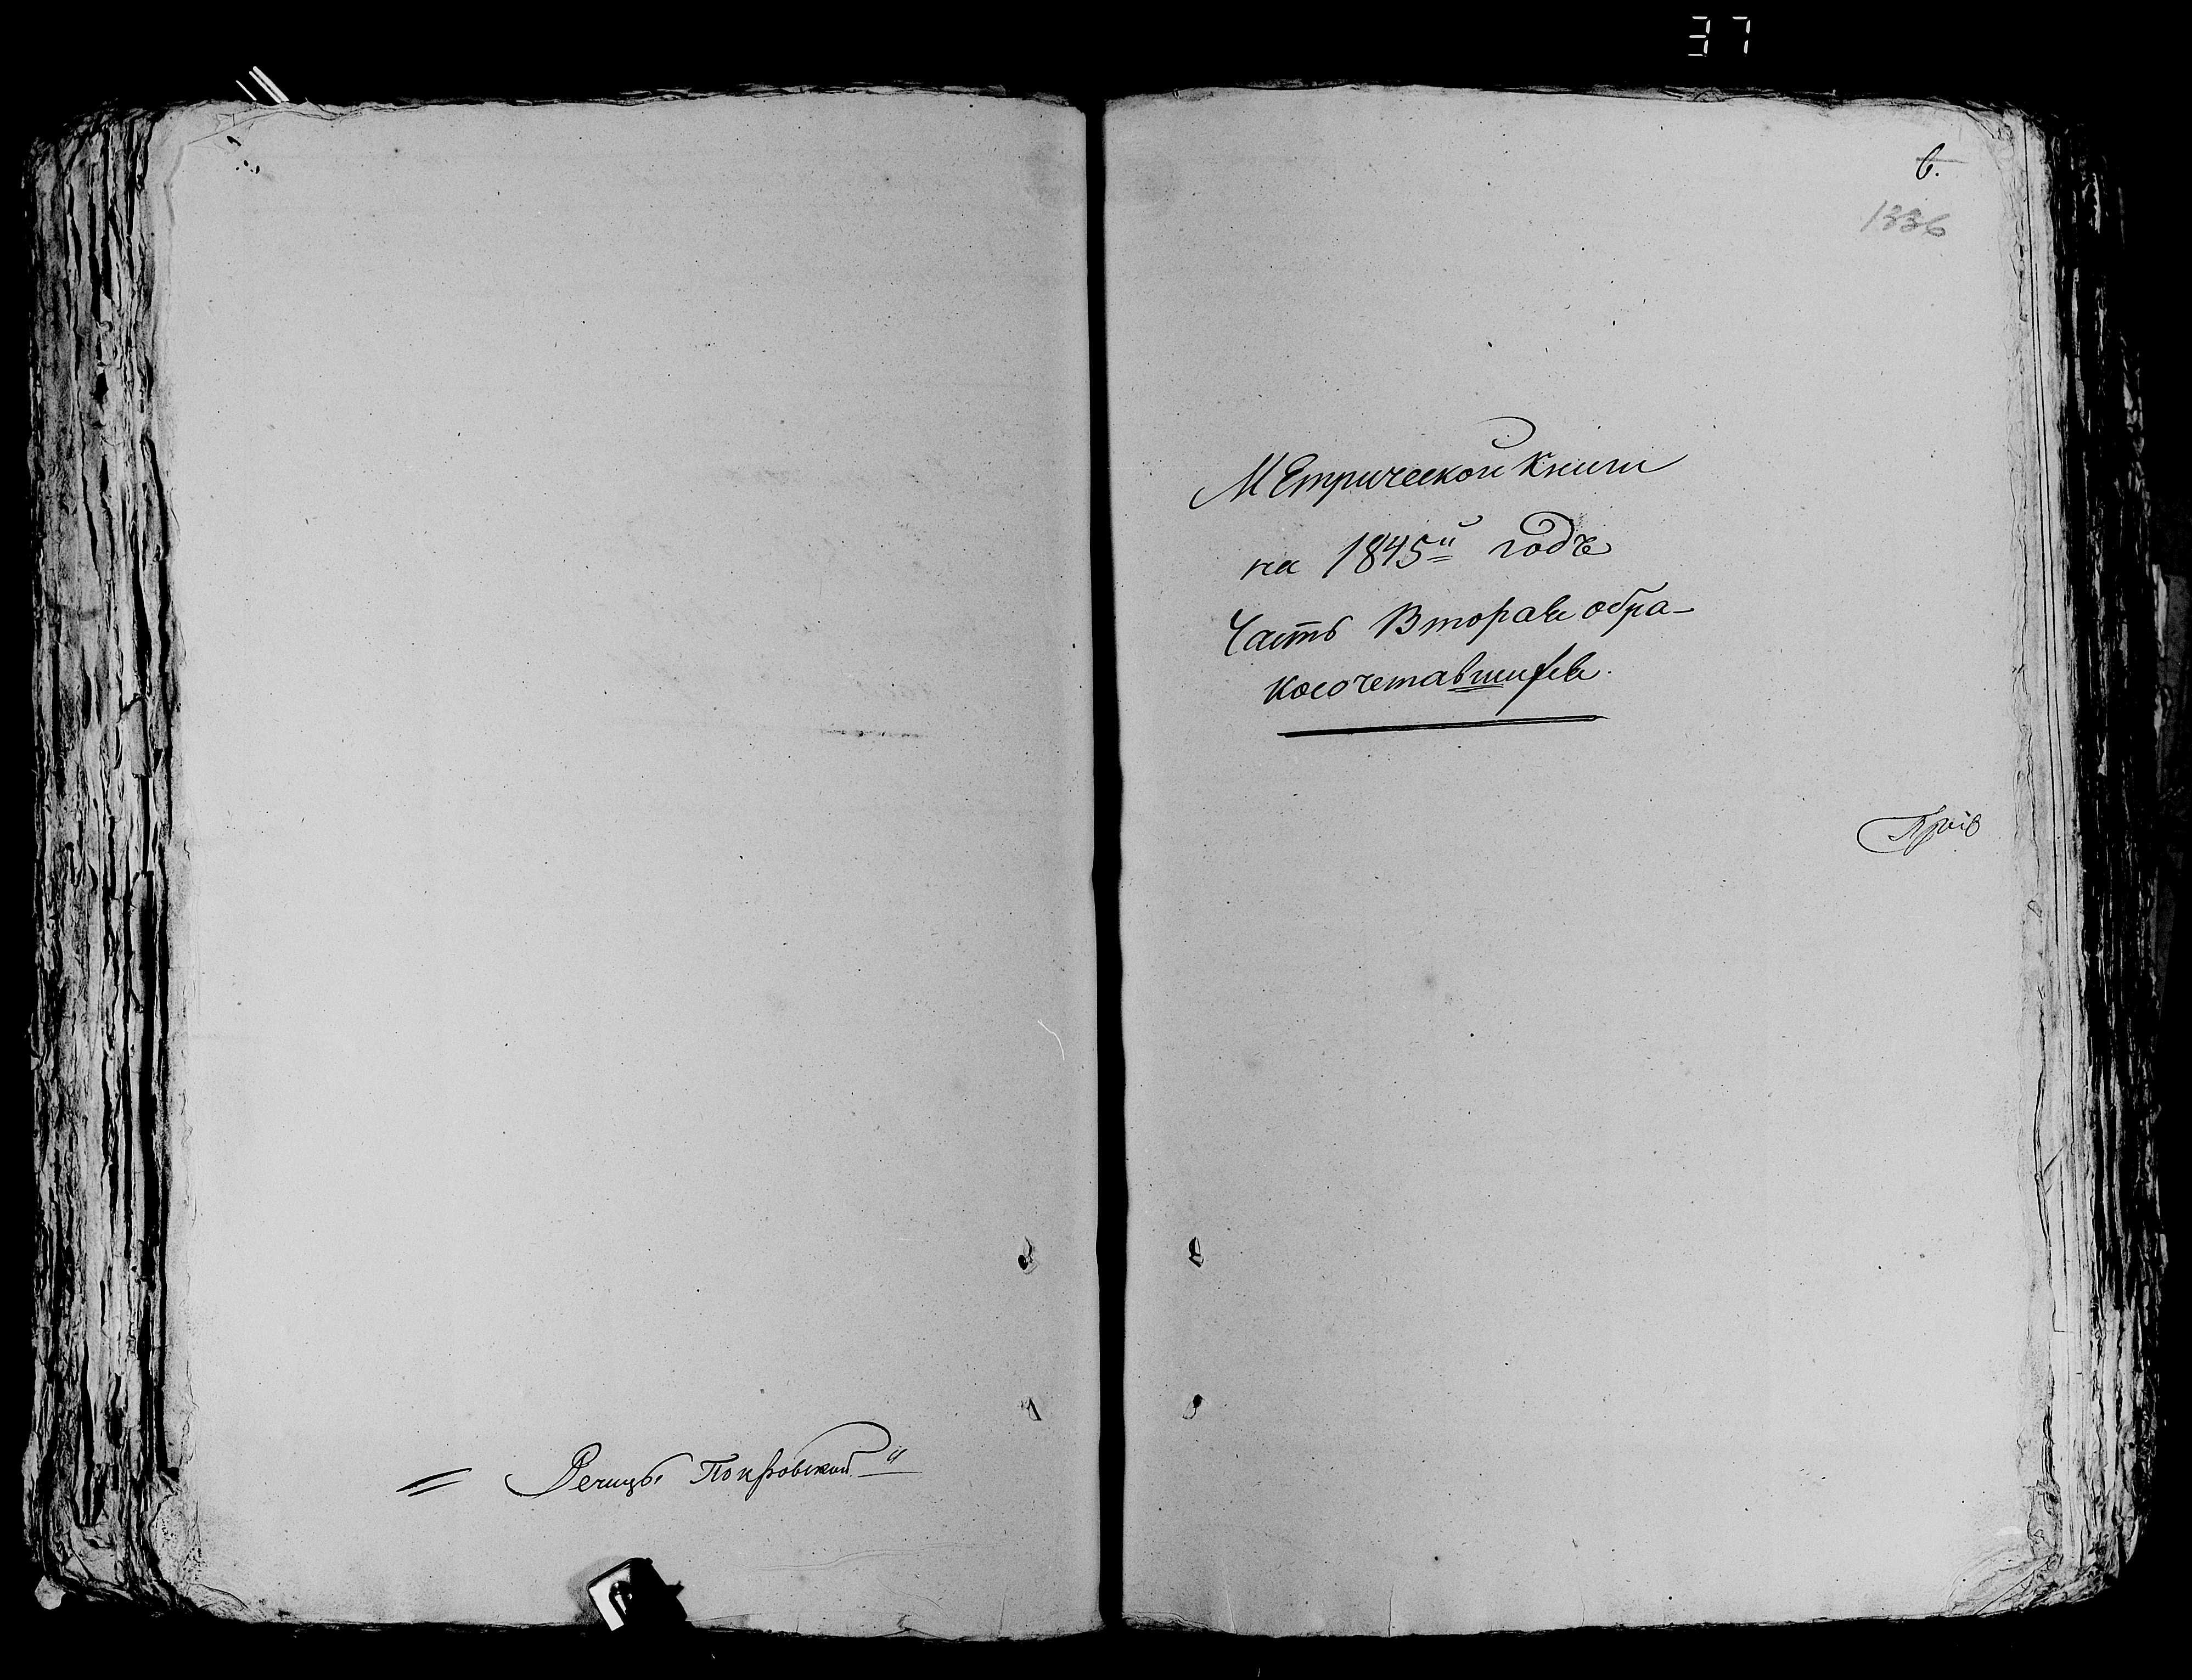 37
6.
1336
Метрической Книги
на 1845й годъ
Часть Вторая обра-
косочетавшихся.
Речицы Покровской